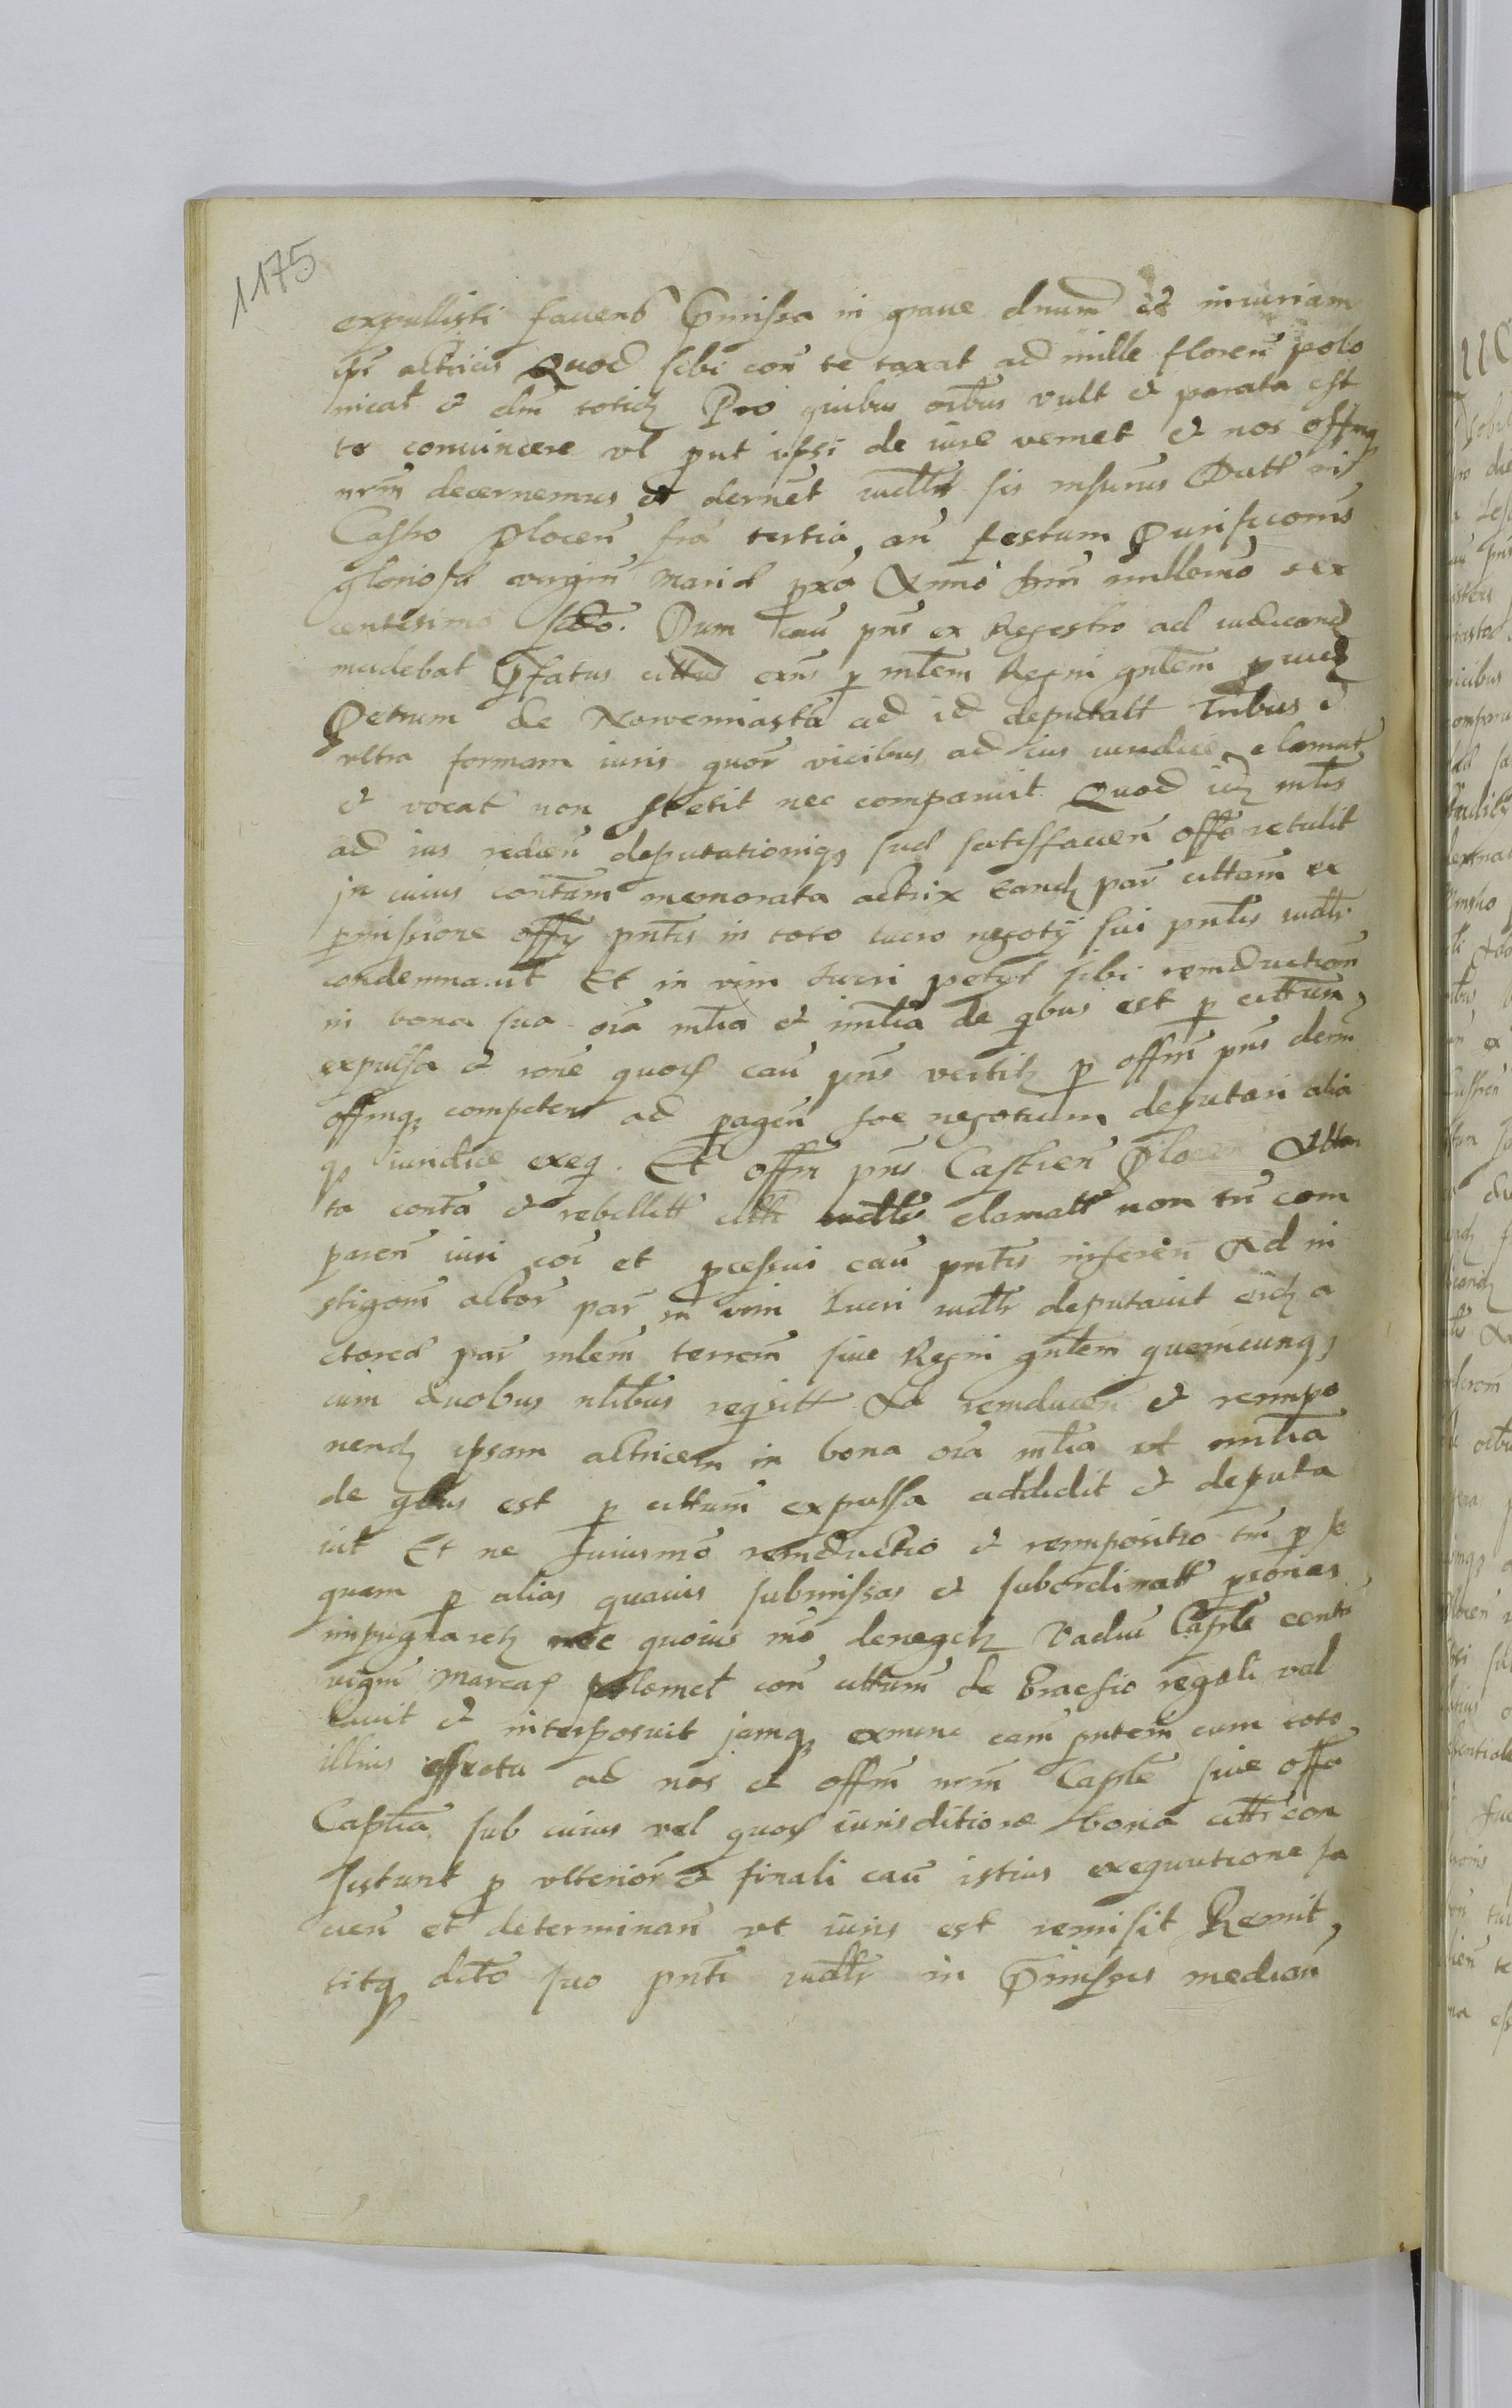 1175
expullisti faciens Pmissa in graue dnum et iniuriam
ipi actricis Quod sibi con te taxat ad mille floren polo
nical et dm totid Pro quibus oibus vult et parata est
te conuincere vl put ipsi de iure veniet et nos offmq
nrm decernemus et dernet iudltr sis rnsurus Datt in
Castro Plocen fra tertia an festum Purificonis
gloriose virgin Marie pxa Anno dni millemo sex
centesimo scdo. Dum cau pns ex Regestro ad iudicand
incidebat Pfatus cittus exns p mlem Regni gnlem puid
Petrum de Nowemiasta ad id deputatt tribus et
vltra formam iuris quor vicibus ad ius iuridice clamat
et vocat non stetit nec comparuit Quod id mlis
ad ius redien deputationiq sue satisfacien offo retulit
in cuius contam memorata actrix eand par cittam ex
pmissione offy pntis in toto lucro negoty sui pntis iudltr
condemnauit Et in vim lucri petyt sibi reinductiom
in bona sua oia mlia et imlia de qbus est p cittum
expulsa et rone quor cau pns vertitz p offm pns derni
offmq competens ad pagen hoc negotium deputari alia
q iuridice exeq. Et offm pns Castren Plocen
ta conta et rebellitt citti iudltr clamatt non tn com
paren iuri coi et pcessui cau pntis inferen Ad in
stigom actor par in vim lucri iudltr deputauit eid a
ctorea par mlem terrem siue Regni gnlem quemcunq
cum duobus nlibus reqsitt Ad reinducen et reimpo
nend ipsam actricem in bona oia mlia vt imlia
de qbus est p cittum expulsa addidit et deputa
uit Et ne huiusmo reinductio et reimpositio tm p se
quam p alias quauis submissas et subordinatt psonas
impugnaretz nec quouis mo denegetz Vadiu Caple centu
vigin marcas polonical con cittum de Praesio regali val
lauit et interposuit jamq exnunc cam pntem cum toto
illius effectu ad nos et offm nrm Caple siue offa
Caplia sub cuius vel quor iurisditione bona citti con
sistunt p vlterior et finali cau istius exequutione fa
cien et determinan vt iuris est remisit Remit
titq dcto suo pnti iudltr in Pmissis median